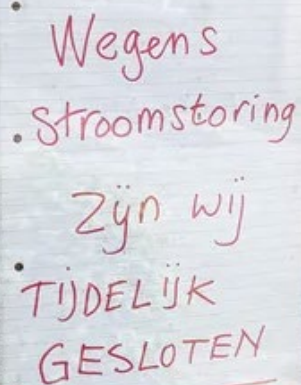 Wegens
Stroomstoring
Zijn wij
TIJDELIJK
GESLOTEN